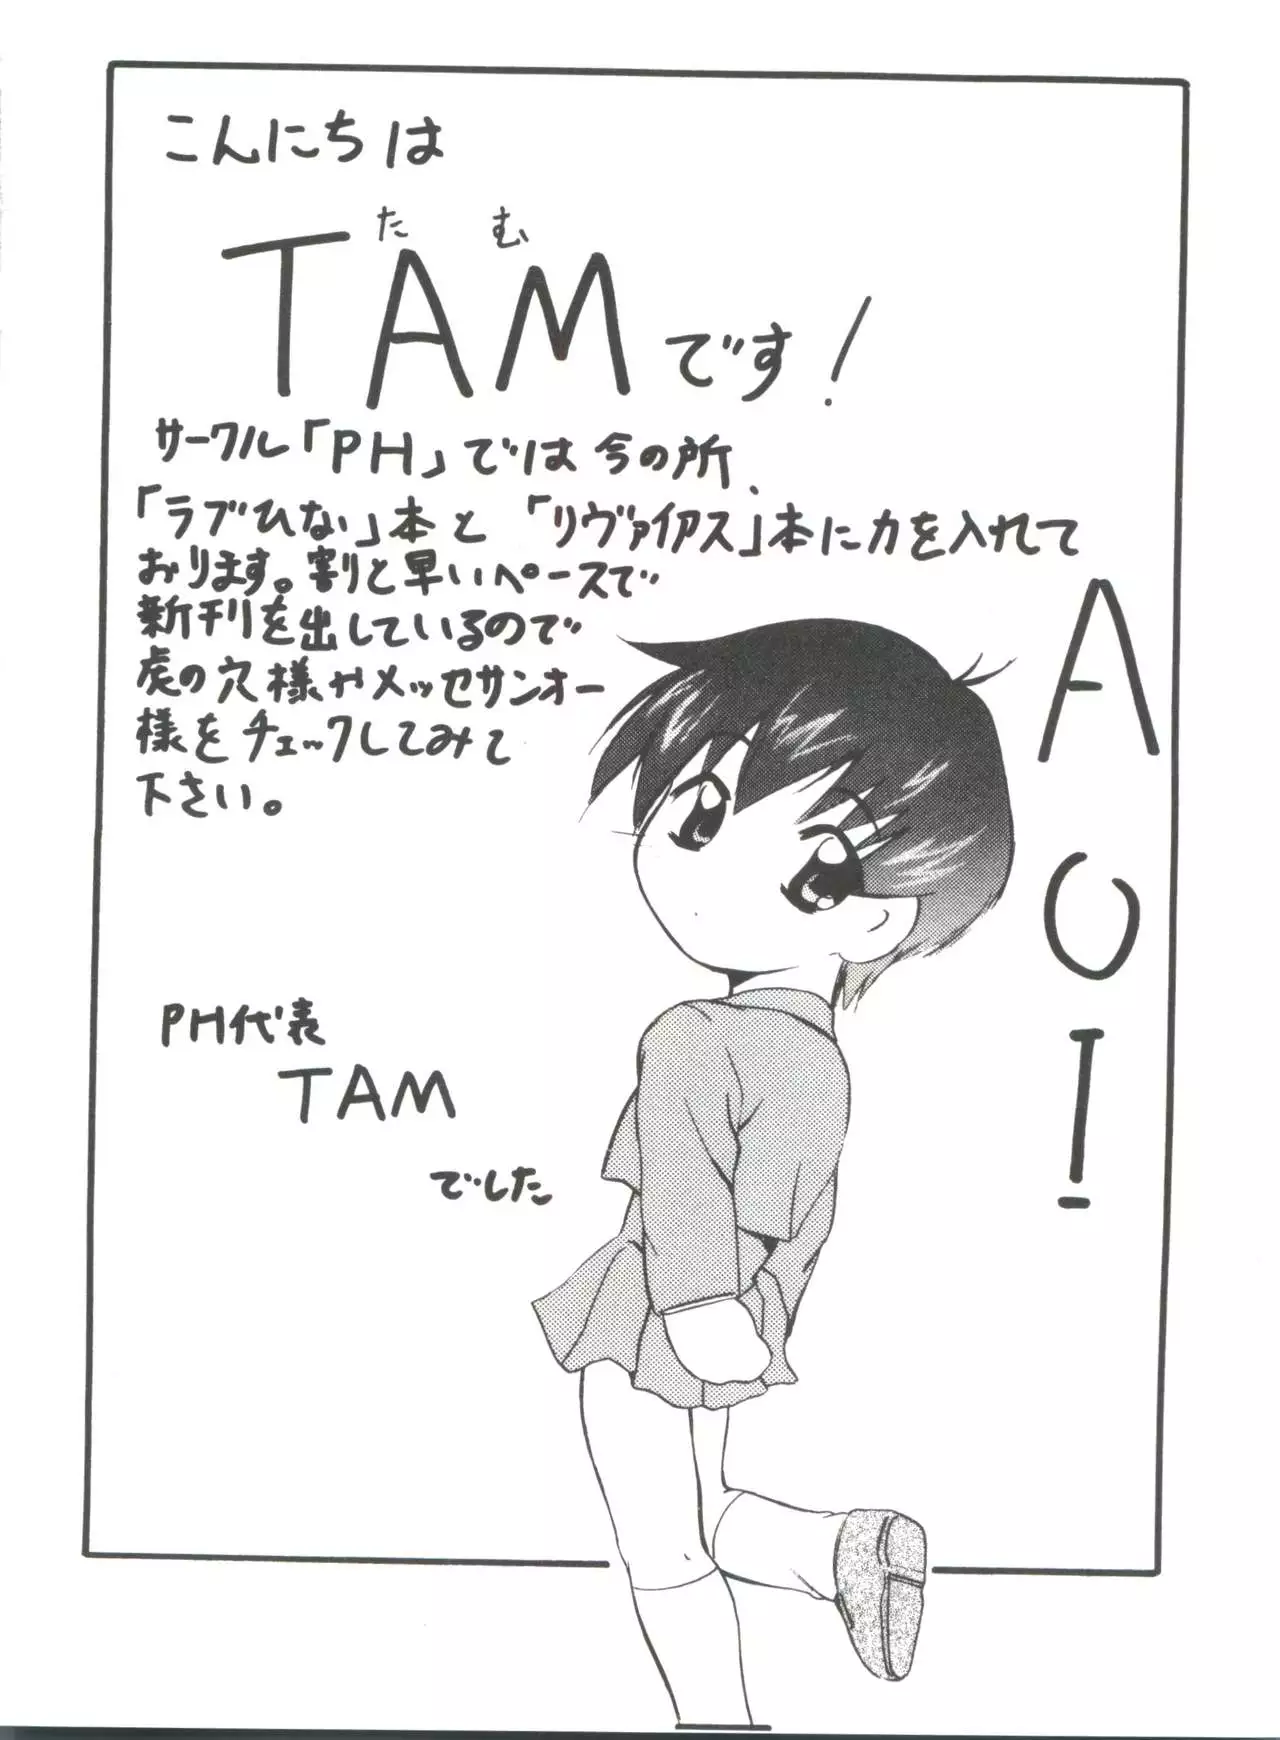 こんにちは
たむ
TAMです!
サークル「PH」では今の所、
「ラブひな」本と「リヴァイアス」本に力を入れて
おります。割りと早いペースで
新刊を出しているので
虎の穴様やメッセサンオー
様をチェックしてみて
下さい。
AOI
PH代表
TAM
でした